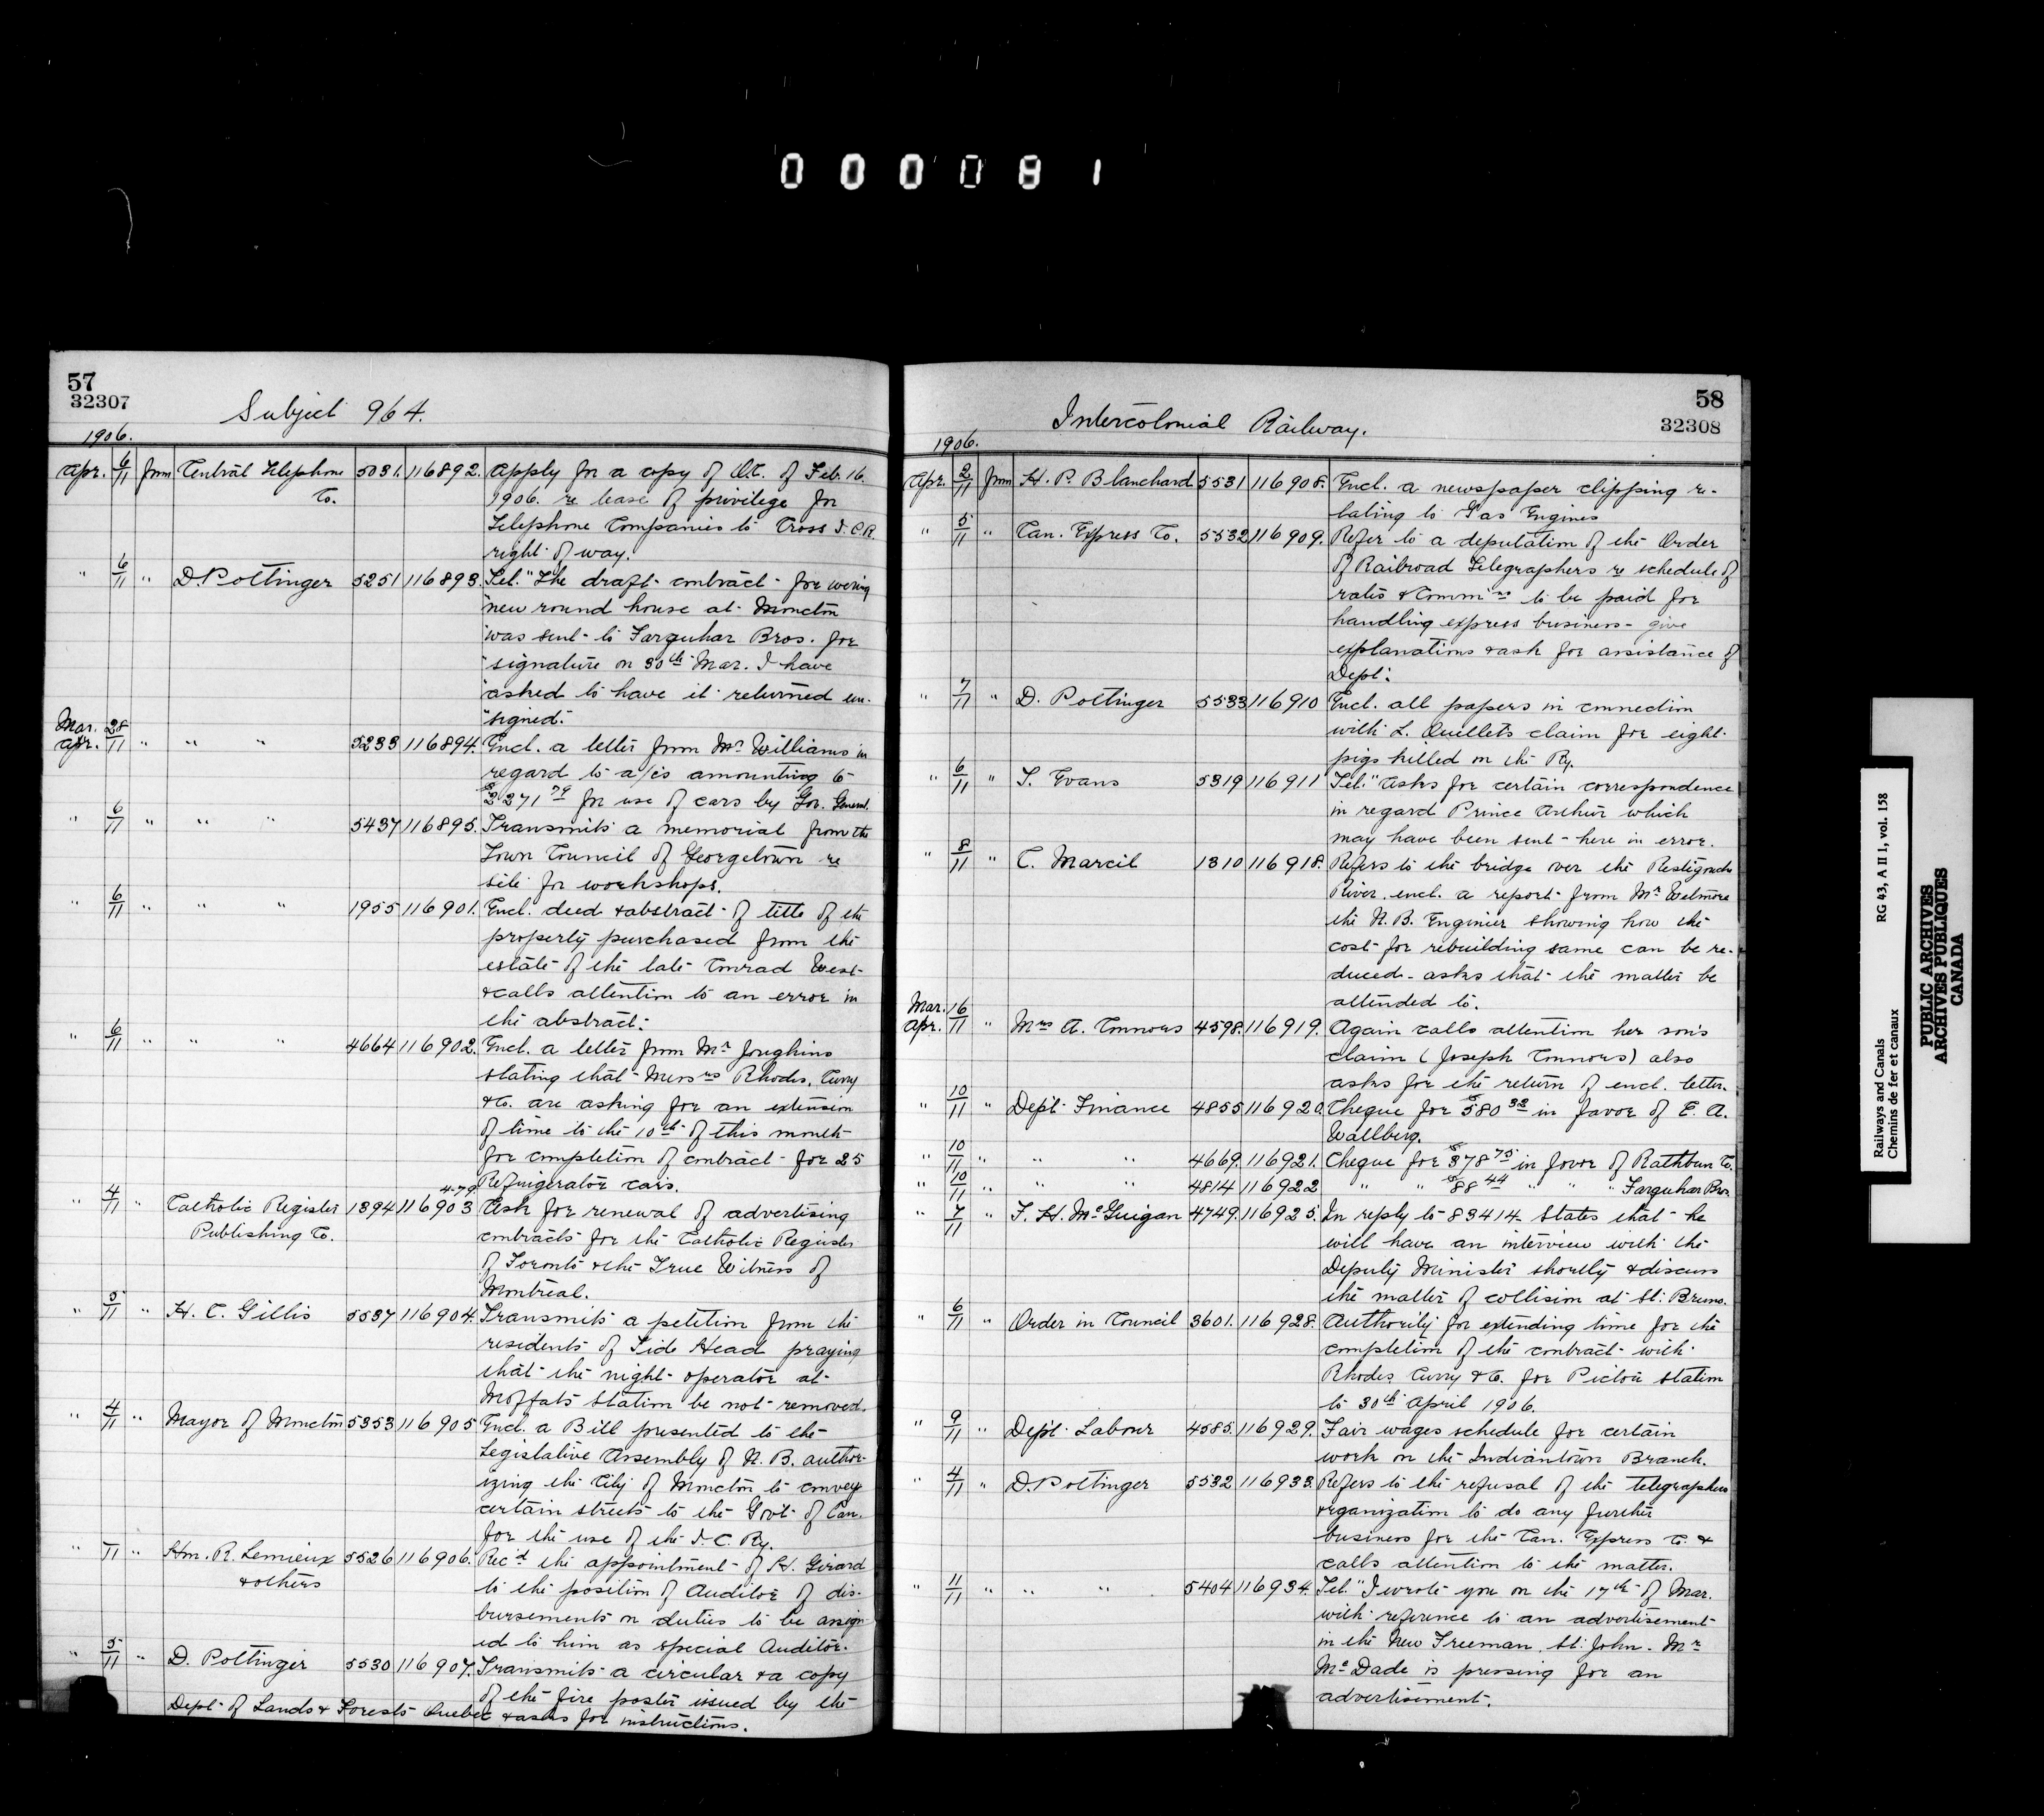 000081
57
32307
Subject 964.
1906.
Apr. 6/11 from Central Telephone Co. 5031. 116892. Apply for a copy of O.C. of Feb. 16.
1906. re lease of privilege for
Telephone Companies to Cross I.C.R.
right of way.
" 6/11 " D. Pottinger 5251 116893. Tel. "The draft contract for wiring
"new round house at Moncton
"was sent to Farquhar Bros. for
"signature on 30th Mar. I have
"asked to have it returned un-
"signed."
Mar. 28
Apr. 11 " " " 5233 116894. Encl. a letter from Mr Williams in
regard to a/cs amounting to
$2271.79 for use of cars by Gov. General.
" 6/11 " " " 5437 116895. Transmits a memorial from the
Town Council of Georgetown re
site for workshops.
" 6/11 " " " 1955 116901. Encl. deed & abstract of title of the
property purchased from the
estate of the late Conrad West
& calls attention to an error in
the abstract.
" 6/11 " " " 4664 116902. Encl. a letter from Mr Joughins
stating that Messrs Rhodes, Curry
& Co. are asking for an extension
of time to the 10th of this month
for completion of contract for 25
Refrigerator cars.
4-79.
" 4/11 " Catholic Register Publishing Co. 1394 116903 Ask for renewal of advertising
contracts for the Catholic Register
of Toronto & the True Witness of
Montreal.
" 5/11 " H. C. Gillis 5537 116904. Transmits a petition from the
residents of Tide Head praying
that the night operator at
Moffats Station be not removed.
" 4/11 " Mayor of Moncton 5353 116905 Encl. a Bill presented to the
Legislative Assembly of N.B. author-
izing the City of Moncton to convey
certain streets to the Govt. of Can.
for the use of the I.C. Ry.
" 11 " Hon. R. Lemieux & others 5526 116906. Rec'd the appointment of H. Girard
to the position of Auditor of dis-
bursements or duties to be assign-
ed to him as special Auditor.
" 5/11 " D. Pottinger 5530 116907. Transmits a circular & a copy
of the fire poster issued by the
Dept. of Lands & Forests Quebec & asks for instructions.
58
32308
Intercolonial Railway.
1906.
Apr. 2/11 from H. P. Blanchard 5531 116908. Encl. a newspaper clipping re-
lating to Gas Engines
" 5/11 " Can. Express Co. 5532 116909. Refer to a deputation of the Order
of Railroad Telegraphers re schedule of
rates & Commns to be paid for
handling express business - give
explanations & ask for assistance of
Dept.
" 7/11 " D. Pottinger 5533 116910 Encl. all papers in connection
with L. Ouellets claim for eight
pigs killed on the Ry.
" 6/11 " T. Evans 5319 116911 Tel. "Asks for certain correspondence
in regard Prince Arthur which
may have been sent here in error.
" 8/11 " C. Marcil 1310 116918. Refers to the bridge over the Restigouche
River. encl. a report from Mr Wetmore
the N.B. Engineer showing how the
cost for rebuilding same can be re-
duced - asks that the matter be
attended to.
Mar. 16
Apr. 11 " Mrs A. Connors 4598. 116919. Again calls attention her son's
claim (Joseph Connors) also
asks for the return of encl. letter.
" 10/11 " Dept. Finance 4855 116920. Cheque for $580.33 in favor of E. A.
Wallberg.
" 10/11 " " " 4669. 116921. Cheque for $378.75 in favor of Rathbun Co.
" 10/11 " " " 4814 116922 " " $88.44 " " " Farquhar Bros.
" 7/11 " F. H. McGuigan 4749. 116925. In reply to 83414 States that he
will have an interview with the
Deputy Minister shortly & discuss
the matter of collision at St. Bruno.
" 6/11 " Order in Council 3601. 116928. Authority for extending time for the
completion of the contract with
Rhodes, Curry & Co. for Pictou station
to 30th April 1906.
" 9/11 " Dept. Labour 4585. 116929. Fair wages schedule for certain
work on the Indiantown Branch.
" 4/11 " D. Pottinger 5532 116933. Refers to the refusal of the telegraphers
organization to do any further
business for the Can. Express Co. &
calls attention to the matter.
" 11/11 " " " 5404 116934. Tel. "I wrote you on the 17th of Mar.
with reference to an advertisement
in the New Freeman, St. John. Mr
McDade is pressing for an
advertisement.
Railways and Canals
Chemins de fer et canaux
RG 43, A II 1, vol. 158
PUBLIC ARCHIVES
ARCHIVES PUBLIQUES
CANADA